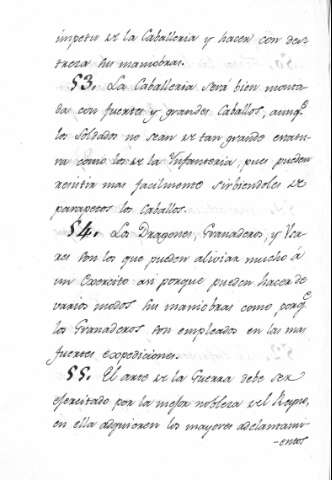 impetu de la Caballeria y hacer con des-
treza su maniobras.
53. La Caballeria será bien monta
da con fuertes y grandes Caballos, aunq.e
los Soldados no sean de tan grande estatu
ra como los de la Ynfanteria, pues pueden
resistir mas facilmente sirbiendoles de
parapetos los Caballos.
54. Los Dragones, Granaderos, y
son los que pueden aliviar mucho á
un Exercito asi porque pueden hacer de
varios modos su maniobras como porq.e
los Granaderos son empleados en las mas
fuertes expediciones.
55. El arte de la Guerra debe ser
ejercitado por la mejor nobleza del Reyno,
en ella adquieren los mayores adelantami-
-entos